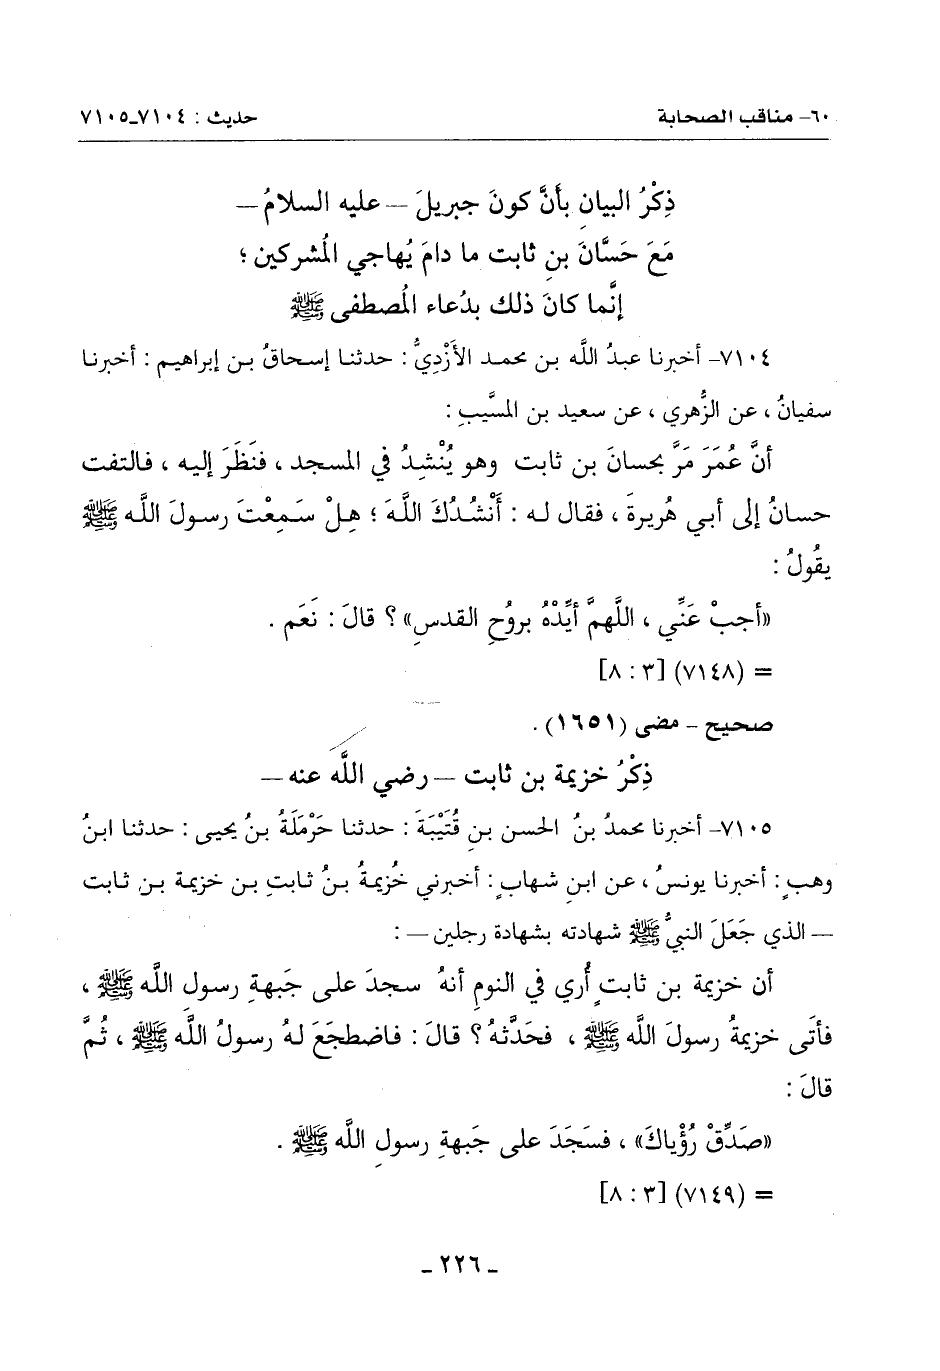 ٦٠- مناقب الصحابة
حديث : ٧١٠٤ـ٧١٠٥
ذِكْرُ البيانِ بأنَّ كونَ جبريلَ — عليه السلامُ —
مَعَ حَسَّانَ بنِ ثابت ما دامَ يُهاجي المُشركين ؛
إنَّما كانَ ذلك بدُعاء المُصطفى ﷺ
٧١٠٤- أخبرنا عبدُ اللَّه بن محمد الأَزْدِيُّ : حدثنا إسحاقُ بن إبراهيم : أخبرنا
سفيانُ ، عن الزُّهري ، عن سعيد بن المسَّيبِ :
أنَّ عُمَرَ مَرَّ بحسانَ بن ثابت وهو يُنْشِدُ في المسجد ، فنَظَرَ إليه ، فالتفت
حسانُ إلى أبي هُريرةَ ، فقال له : أَنْشُدُكَ اللَّهَ ؛ هلْ سَمِعْتَ رسولَ اللَّه ﷺ
يقُولُ :
«أجبْ عَنِّي ، اللَّهمَّ أيِّدْهُ بروُحِ القدسِ» ؟ قالَ : نَعَم .
= (٧١٤٨) [٣ : ٨]
صحيح - مضى (١٦٥١) .
ذِكْرُ خزيمة بن ثابت — رضي اللَّه عنه —
٧١٠٥- أخبرنا محمدُ بنُ الحسن بنِ قُتَيْبَةَ : حدثنا حَرْمَلَةُ بنُ يحيى : حدثنا ابنُ
وهبٍ : أخبرنا يونسُ ، عن ابنِ شهابٍ : أخبرني خُزيمةُ بنُ ثابتِ بن خزيمة بن ثابت
— الذي جَعَلَ النبيُّ ﷺ شهادته بشهادة رجلين — :
أن خزيمة بن ثابتٍ أُري في النومِ أنهُ سجدَ على جَبهةِ رسول اللَّه ﷺ ،
فأتَى خزيمةُ رسولَ اللَّه ﷺ ، فحَدَّثهُ ؟ قالَ : فاضطجَعَ لهُ رسولُ اللَّه ﷺ ، ثُمَّ
قالَ :
«صَدِّقْ رُؤْياكَ» ، فسَجَدَ على جَبهةِ رسولِ اللَّه ﷺ .
= (٧١٤٩) [٣ : ٨]
- ٢٢٦ -